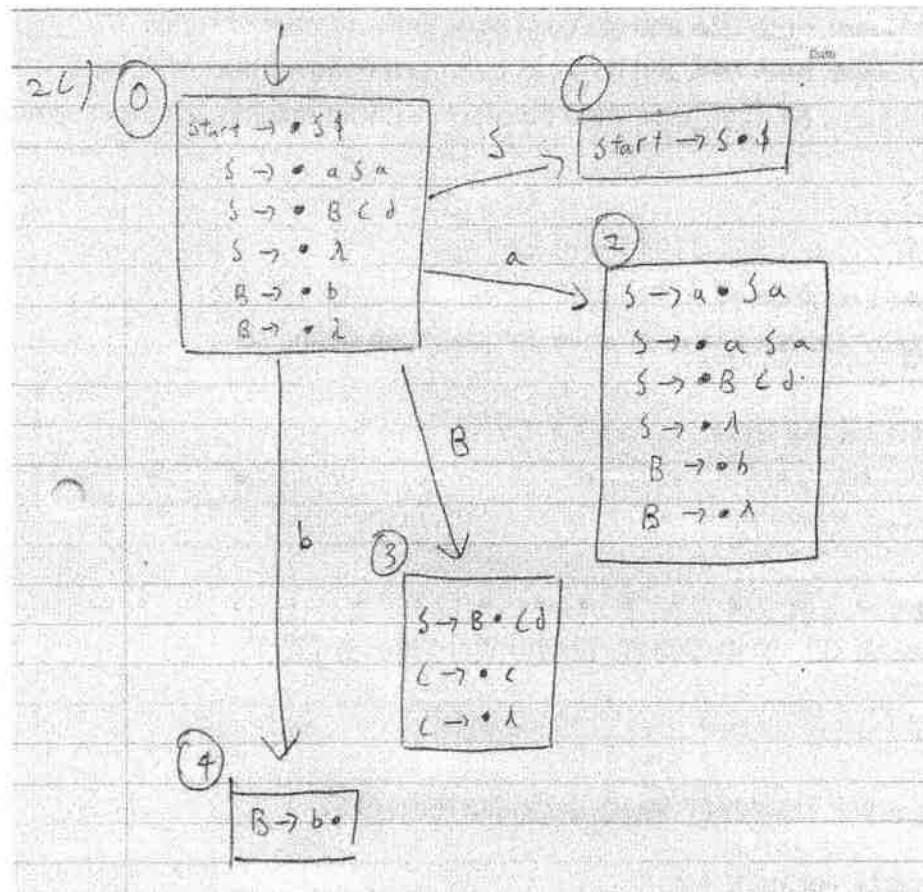 Date
2c)
0
start → • S $
S → • a S a
S → • B C d
S → • λ
B → • b
B → • λ
S
1
start → S • $
a
2
S → a • S a
S → • a S a
S → • B C d
S → • λ
B → • b
B → • λ
B
3
S → B • C d
C → • c
C → • λ
b
4
B → b •